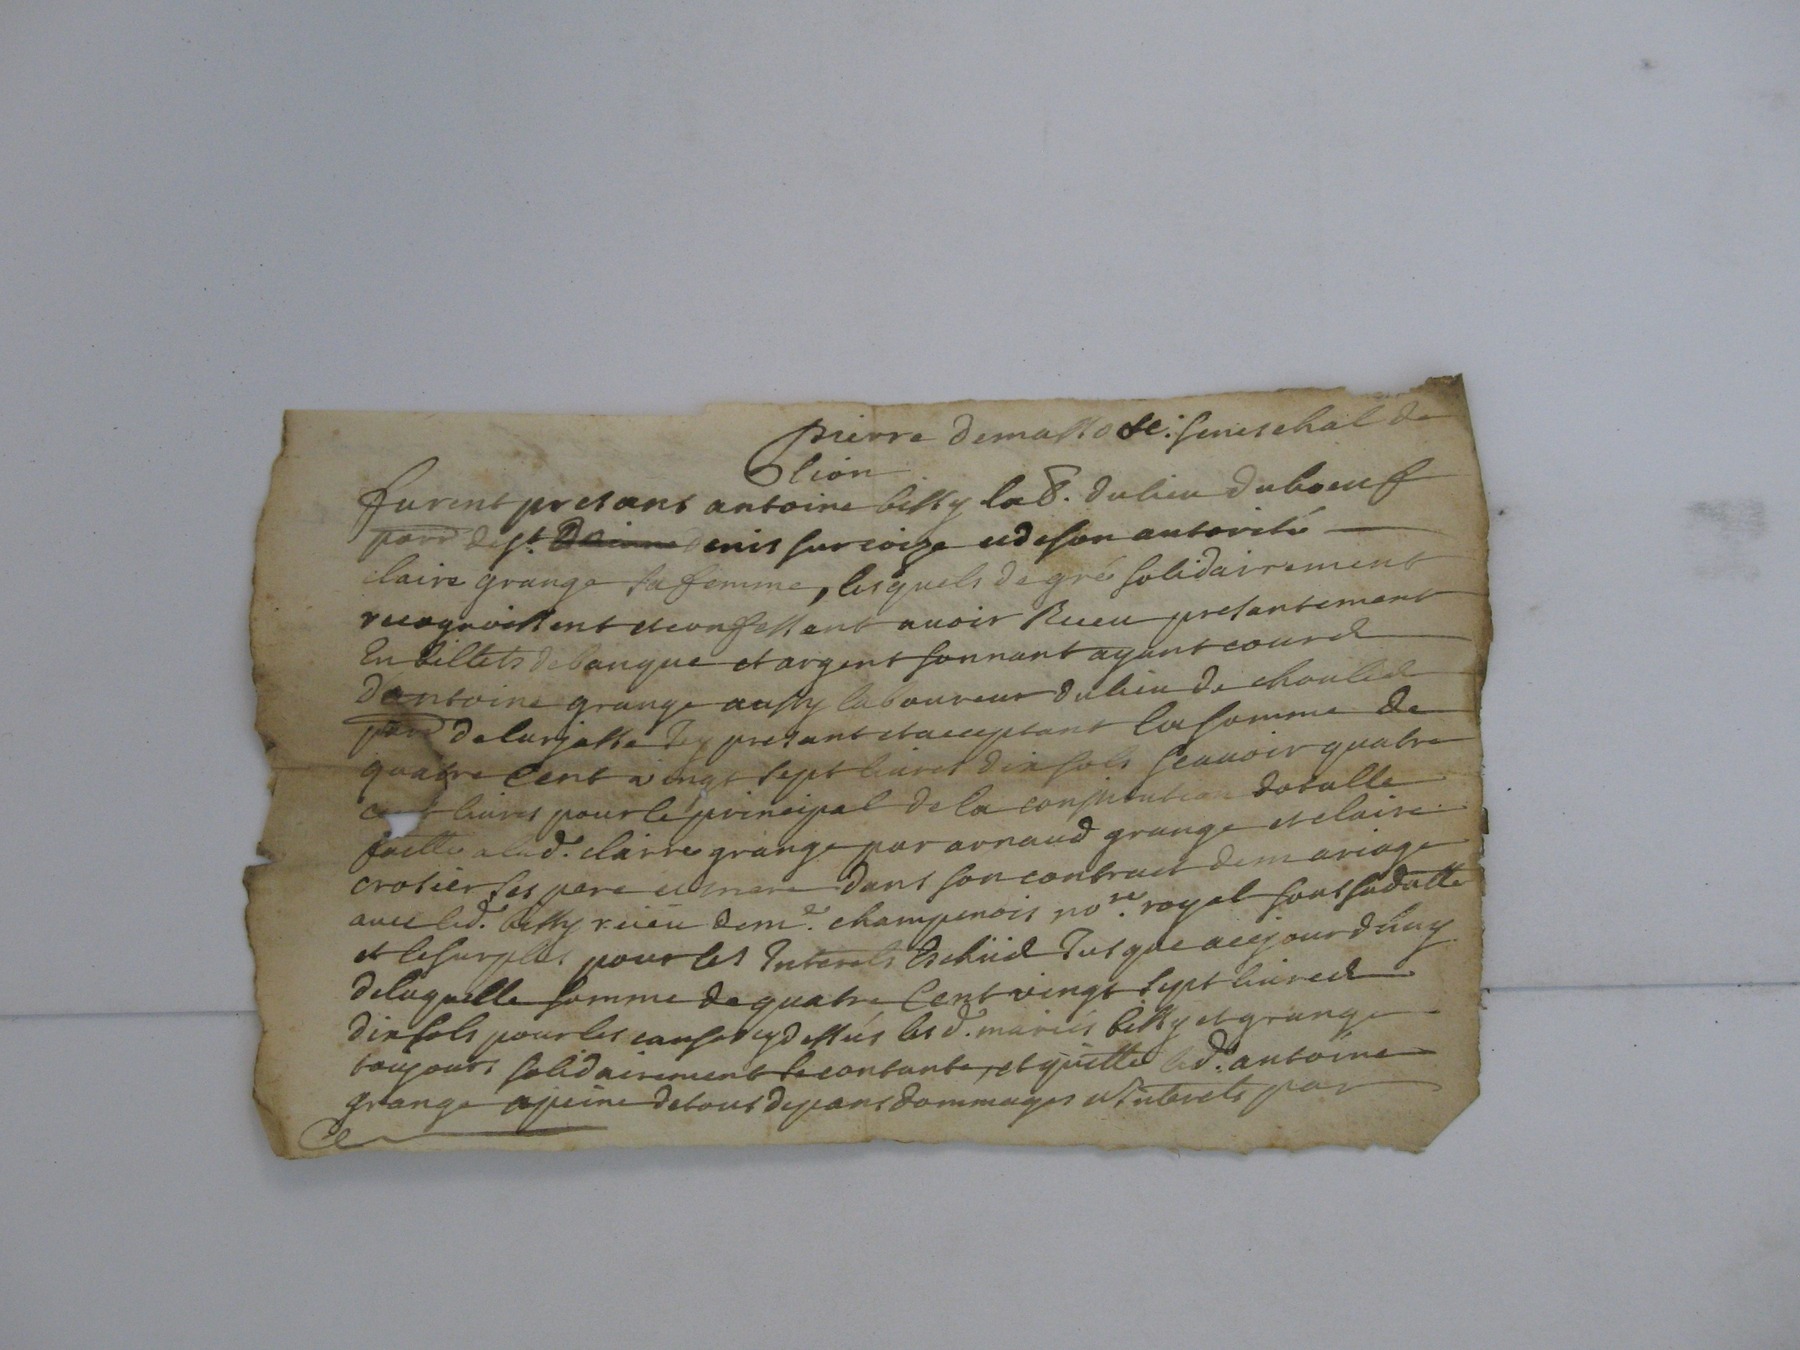 pierre demasso sei. seneschal de
lion
furent presans antoine bissy lab. du lieu duboeuf
parr. de st. denis sur coize et de son autorité
claire grange sa femme, lesquels de gré solidairement
recognoissent et confessent avoir Receu presantement
En billets de banque et argent sonnant ayant cours
d'antoine grange aussy laboureur du lieu de
parr. de larjasse Icy presant et acceptant la somme de
quatre Cent vingt sept livres dix sols scavoir quatre
cent livres pour le principal de la constitution dotalle
faitte a lad. clairre grange par arnaud grange et claire
crosier ses pere et mere dans son contract de mariage
avec led. bissy receu de me. champenois nore. royal sous sa datte
et le surplus pour les Interets Eschüs Jusque a cejourdhuy
de laquelle somme de quatre Cent vingt sept livres
dix sols pour les causes cy dessus les d. mariés bissy et grange
toujours solidairement se contante, et quitte led. antoine
grange a peine de tous depans dommages et Interets par
Ce